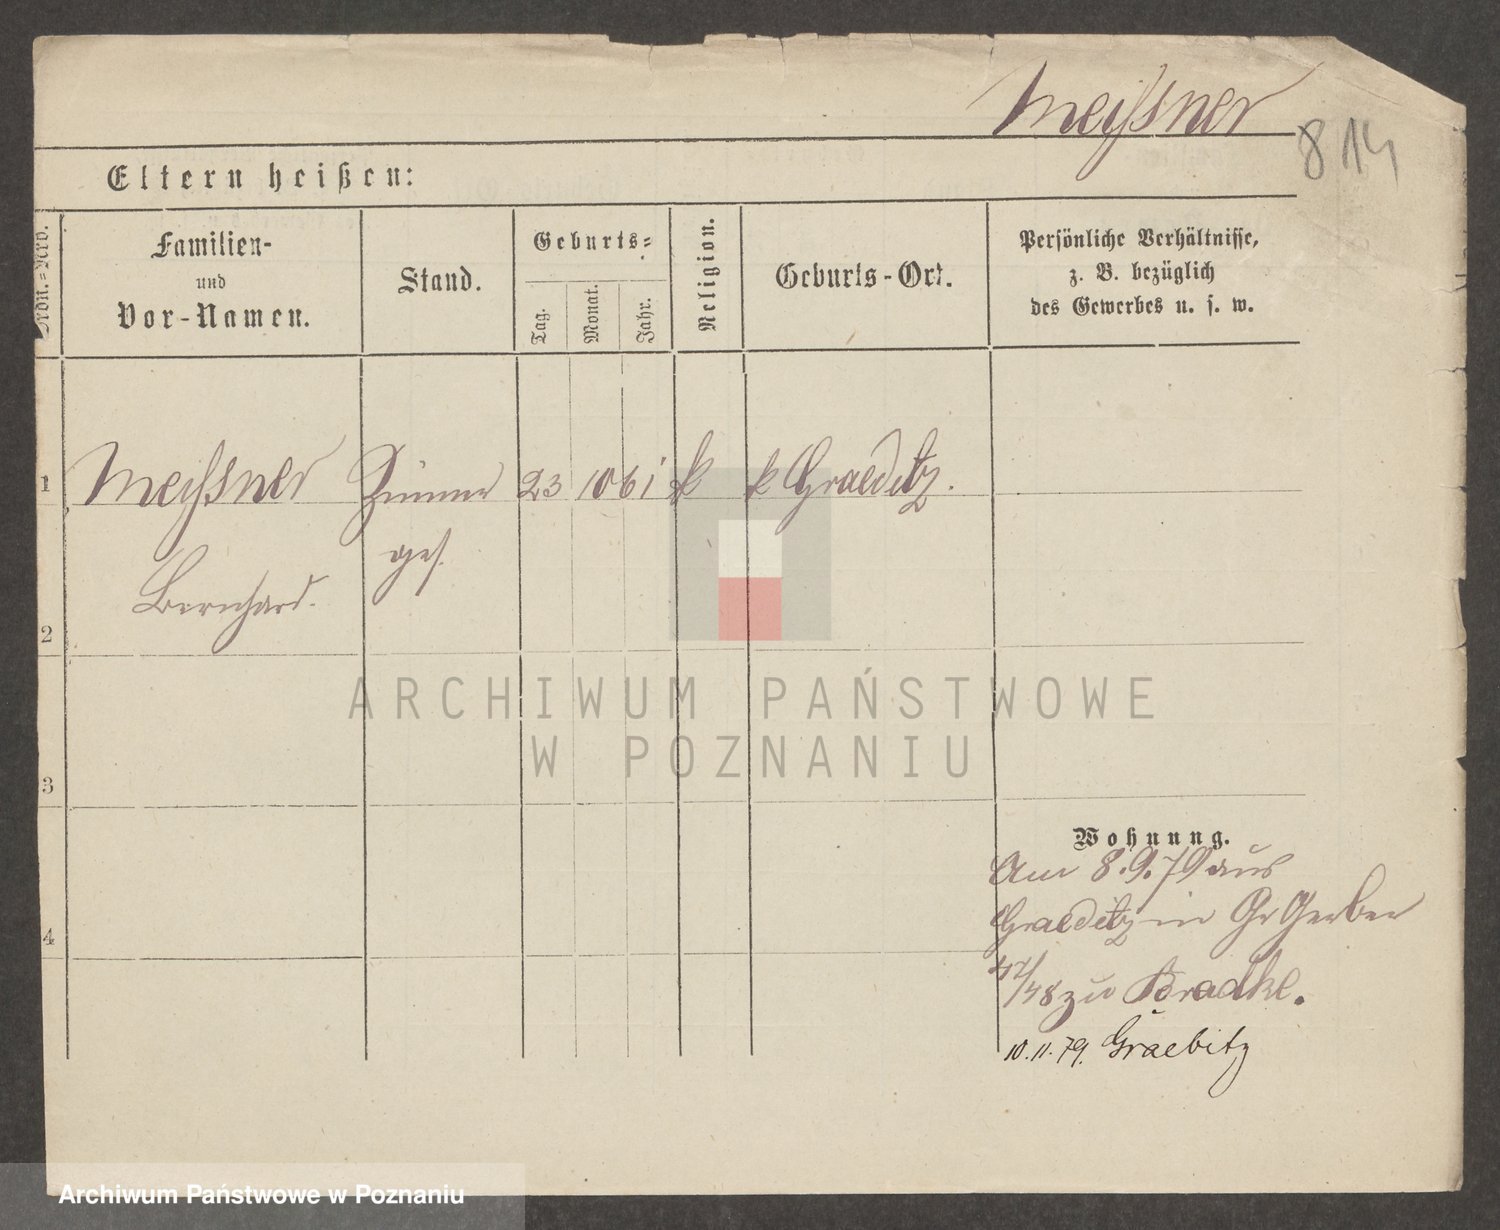 Meissner
814
Eltern heißen:
Ordn.=Nro.
Familien-
und
Vor-Namen.
Stand.
Geburts=
Tag.
Monat.
Jahr.
Religion.
Geburts-Ort.
Persönliche Verhältnisse,
z. B. bezüglich
des Gewerbes u. s. w.
1
Meissner Zimmer 23 10 61 k k Graeditz.
ges.
Bernhard.
2
ARCHIWUM PAŃSTWOWE
W POZNANIU
3
Wohnung.
Am 8.9.79 aus
Graeditz in Gr Gerber
4
47/48 zu Bradke.
10.11.79. Graebitz
Archiwum Państwowe w Poznaniu